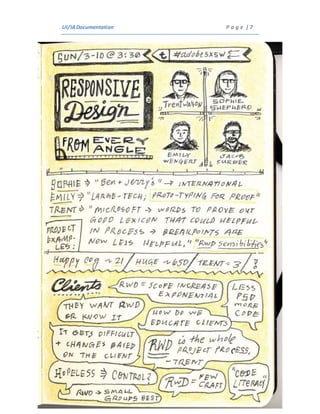 UI/IA Documentation
P a g e | 7
SUN/3-10 @ 3:30
t #adobesxsw
RESPONSIVE
Design
FROM EVERY
ANGLE
Trent Walton
SOPHIE
SHEPHERD
EMILY
WENGERT
JACOB
SURBER
SOPHIE → "Ben + Jerry's" → INTERNATIONAL
EMILY → "LARGE-TECH; PROTO-TYPING FOR PROOF"
TRENT → "MICROSOFT → WORDS TO PROVE OUT
GOOD LEXICON THAT COULD HELPFUL
IN PROCESS → BREAKPOINTS ARE
NOW LESS HELPFUL," "RWD sensibilities"
PROJECT
EXAMP-
LES:
Happy Cog ~ 21 / HUGE ~ 650 / TRENT = 3 /
Clients
RWD = SCOPE INCREASE
EXPONENTIAL
LESS
PSD
MORE
CODE
THEY WANT RWD
OR KNOW IT
HOW DO WE
EDUCATE CLIENTS
IT GETS DIFFICULT
+ CHANGES BASED
ON THE CLIENT
RWD is the whole
PROJECT PROCESS,
- TRENT
HOPELESS → CONTROL?
RWD = NEW
CRAFT
"CODE
LITERACY"
RWD → SMALL
GROUPS BEST